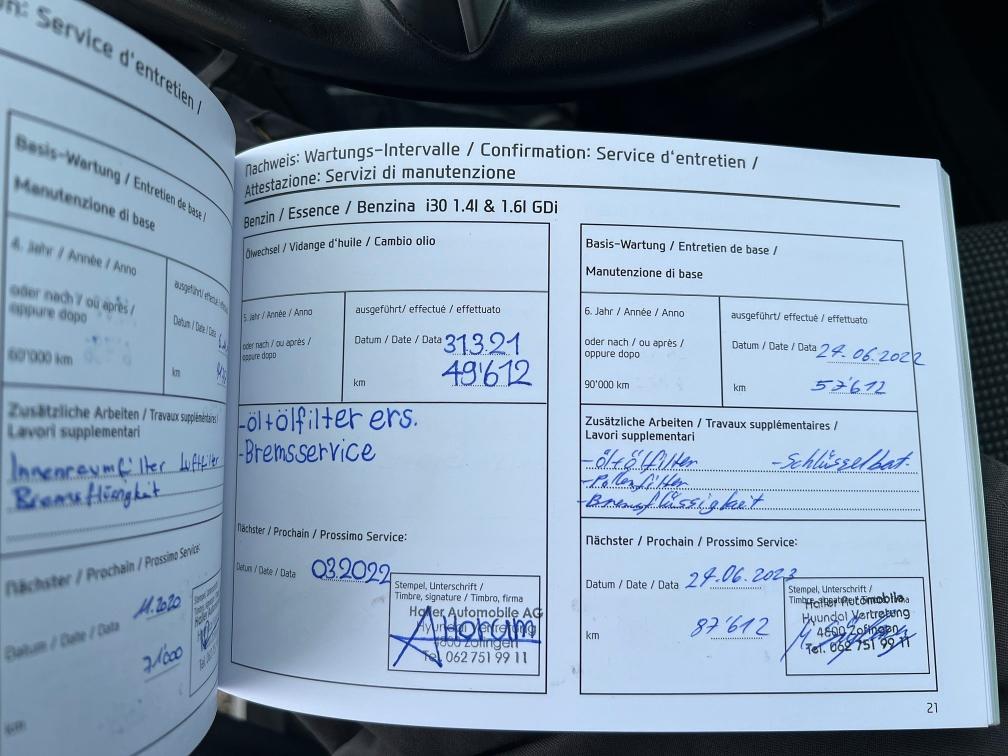 n: Service d'entretien /
Basis-Wartung / Entretien de base /
Manutenzione di base
4. Jahr / Année / Anno
oder nach / ou après /
oppure dopo
60'000 km
ausgeführt/ effectué / effettuat
Datum / Date / Data
km
Zusätzliche Arbeiten / Travaux supplémentaires /
Lavori supplementari
Innenraumfilter Luftfilter
Bremsflüssigkeit
Nächster / Prochain / Prossimo Service:
Datum / Date / Data 11.2020
km 71'000
Nachweis: Wartungs-Intervalle / Confirmation: Service d'entretien /
Attestazione: Servizi di manutenzione
Benzin / Essence / Benzina i30 1.4l & 1.6l GDi
Ölwechsel / Vidange d'huile / Cambio olio
5. Jahr / Année / Anno
oder nach / ou après /
oppure dopo
ausgeführt/ effectué / effettuato
Datum / Date / Data 31.3.21
km 49'612
-öl+ölfilter ers.
-Bremsservice
Nächster / Prochain / Prossimo Service:
Datum / Date / Data 03.2022
Stempel, Unterschrift /
Timbre, signature / Timbro, firma
Haller Automobile AG
Hyundai Vertretung
4800 Zofingen
Tel. 062 751 99 11
Basis-Wartung / Entretien de base /
Manutenzione di base
6. Jahr / Année / Anno
oder nach / ou après /
oppure dopo
90'000 km
ausgeführt/ effectué / effettuato
Datum / Date / Data 24.06.2022
km 57'612
Zusätzliche Arbeiten / Travaux supplémentaires /
Lavori supplementari
-Öl+Ölfilter -Schlüsselbat.
-Pollenfilter
-Bremsflüssigkeit
Nächster / Prochain / Prossimo Service:
Datum / Date / Data 24.06.2023
km 87'612
Stempel, Unterschrift /
Haller Automobile
Hyundai Vertretung
4800 Zofingen
Tel. 062 751 99 11
21